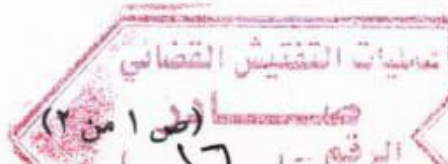 عمليات التفتيش القضائي
صادر
(ص ١ من ٢)
الرقم ١٦